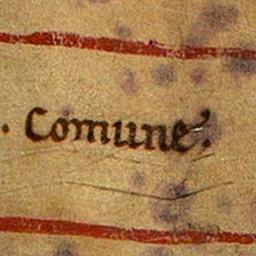 . Comune.